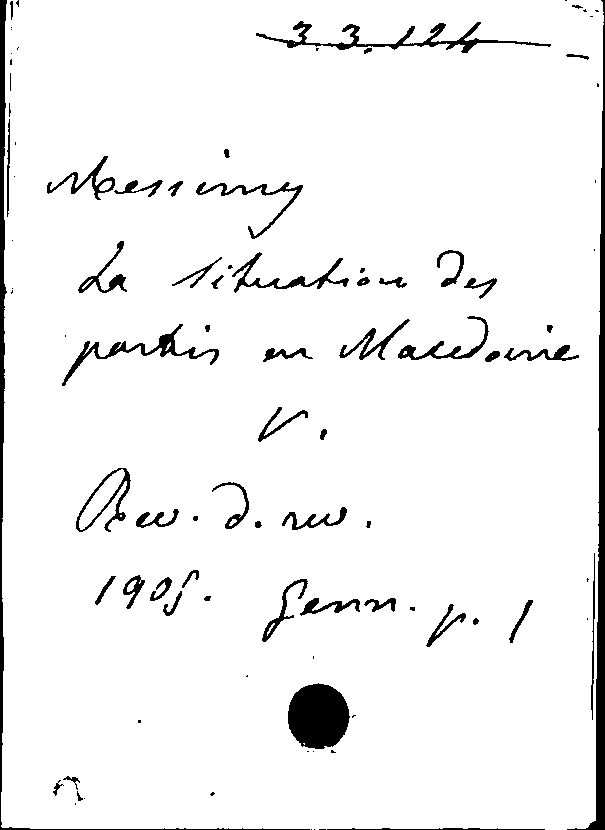 3.3.124
Messimy
La situation des
partis en Macedoine
V.
Rev. d. rev.
1905. Genn. p. 1